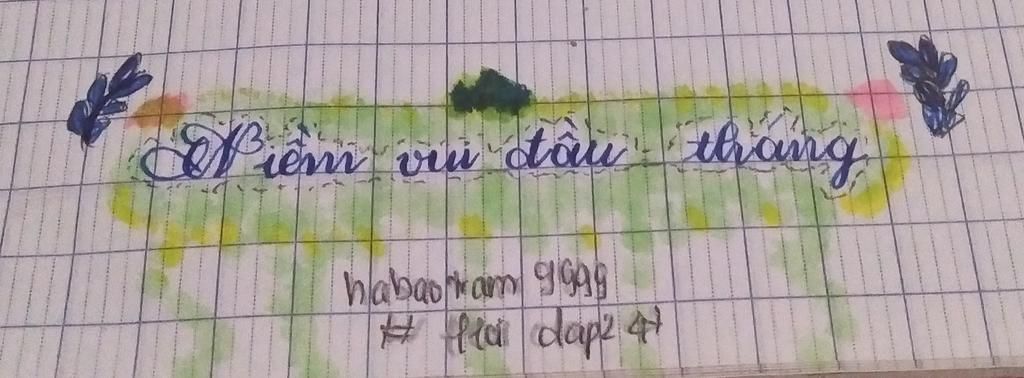 Niềm vui đầu tháng
habaotram 9999
# Hỏi đáp 247